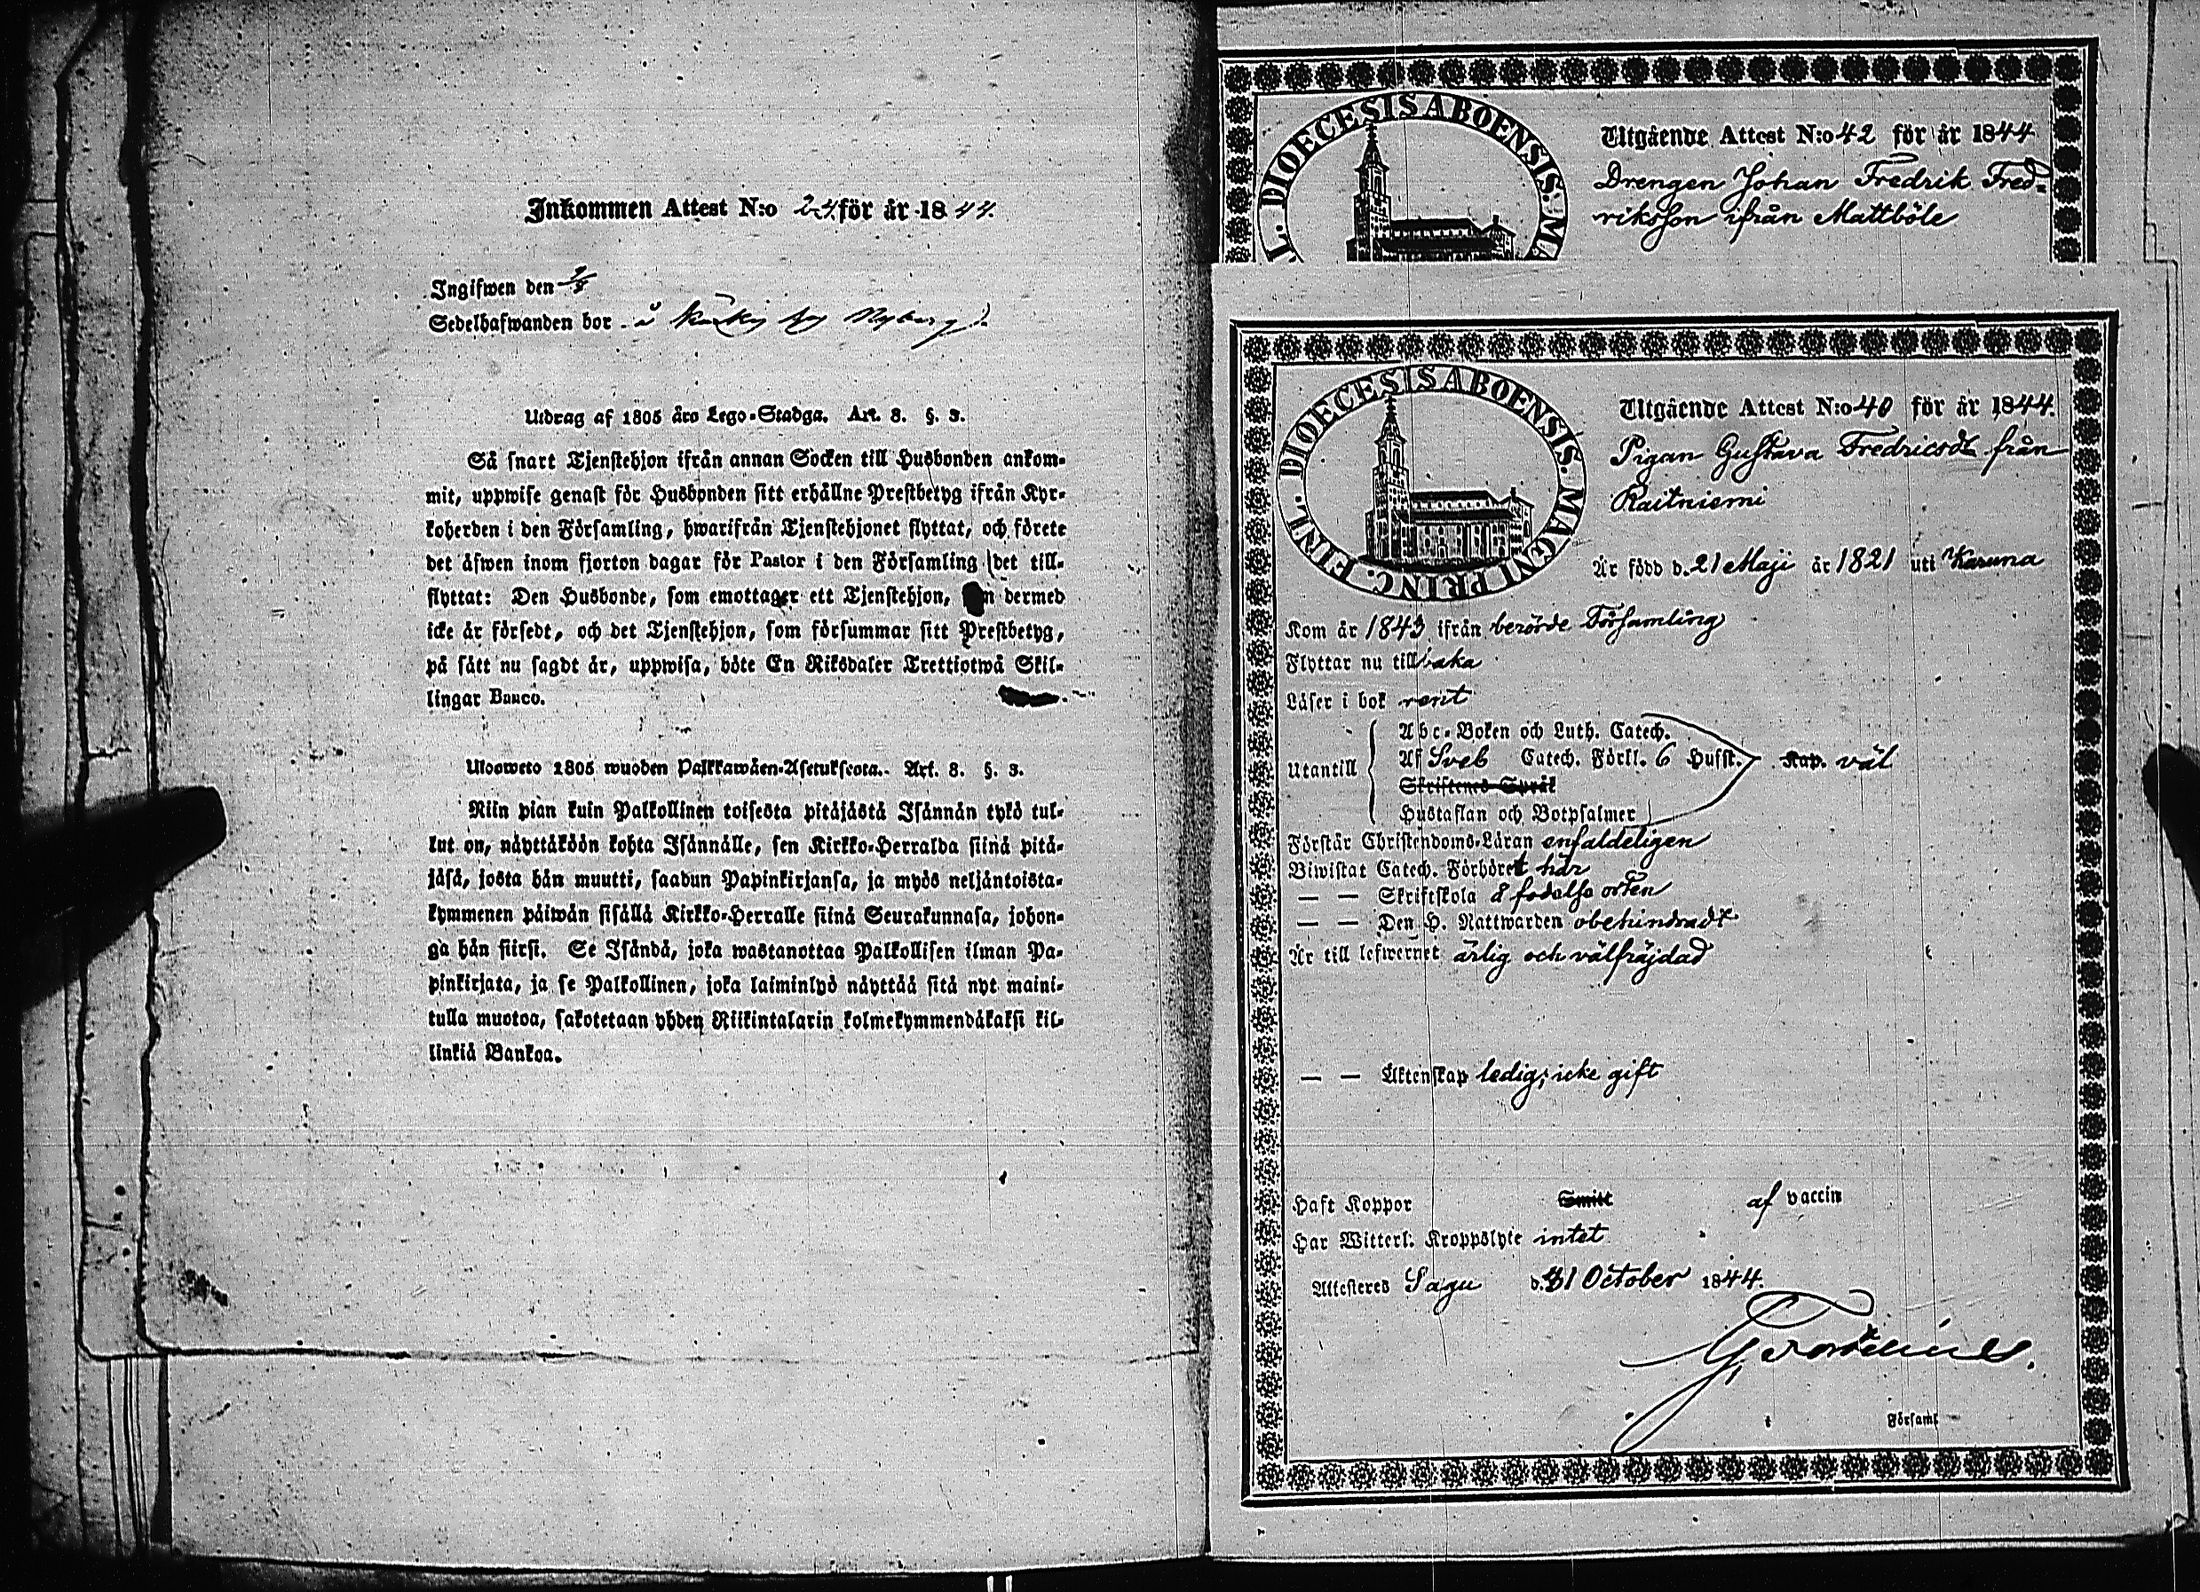 Inkommen Attest N:o 24. för år 1844.
Ingifwen den
Sedelhafwanden bor å
Utdrag af 1805 års Lego-Stadga. Art. 8. §. 3.
Så snart Tjenstehjon ifrån annan Socken till Husbonden ankom-
mit, uppwise genast för Husbonden sitt erhållne Prestbetyg ifrån Kyr-
koherden i den Församling, hwarifrån Tjenstehjonet flyttat, och förete
det äfwen inom fjorton dagar för Pastor i den Församling det till-
flyttat: Den Husbonde, som emottager ett Tjenstehjon, dermed
icke är försedt, och det Tjenstehjon, som försummar sitt Prestbetyg,
på sätt nu sagdt är, uppwisa, böte En Riksdaler Trettiotwå Skil-
lingar Banco.
Ulosweto 1805 wuoden Palkkawäen-Asetuksesta. Art. 8. §. 3.
Niin pian kuin Palkollinen toisesta pitäjästä Isännän tykö tul-
lut on, näyttäköön kohta Isännälle, sen Kirkko-Herralda siinä pitä-
jäsä, josta hän muutti, saadun Papinkirjansa, ja myös neljäntoista-
kymmenen päiwän sisällä Kirkko-Herralle siinä Seurakunnasa, johon-
ga hän siirsi. Se Isändä, joka wastanottaa Palkollisen ilman Pa-
pinkirjata, ja se Palkollinen, joka laiminlyö näyttää sitä nyt maini-
tulla muotoa, sakotetaan yhden Riikintalarin kolmekymmendäkaksi kil-
linkiä Bankoa.
FINL. DIOECESIS ABOENSIS. MA
Utgående Attest N:o 42 för år 1844
Drengen Johan Fredrik Fred-
riksson ifrån Mattböle
FINL. DIOECESIS ABOENSIS. MAGNI PRINC.
Utgående Attest N:o 40 för år 1844.
Pigan Gustava Fredricsdr från
Raitniemi
Är född d. 21 Maji år 1821 uti Karuna
Kom år 1843 ifrån berörde Församling
Flyttar nu tillbaka
Läser i bok rent
Utantill
Abc-Boken och Luth. Catech.
Af Sveb Catech. Förkl. 6 Hufst. Kap. väl
Skriftenes Språk
Hustaflan och Botpsalmer
Förstår Christendoms-Läran enfaldeligen
Biwistat Catech. Förhöret här
— — Skriftskola å fodelse orten
— — Den H. Nattwarden obehindradt
Är till lefwernet ärlig och välfräjdad
— — Äktenskap ledig; icke gift
Haft Koppor Smitt af vaccin
Har Witterl. Kroppslyte intet
Attesteres Sagu d. 31 October 1844.
i Församl